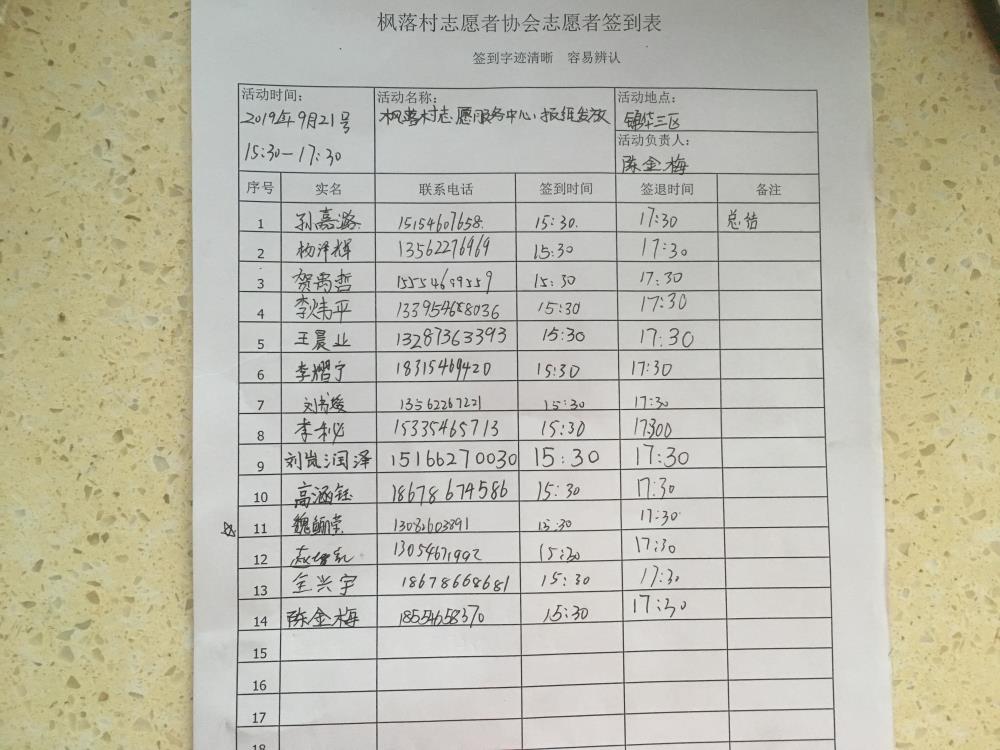 枫落村志愿者协会志愿者签到表
签到字迹清晰 容易辨认
活动时间: 活动名称: 活动地点:
2019年9月21号 枫落村志愿服务中心、报纸发放 锦华三区
15:30-17:30 活动负责人:
陈金梅
序号 实名 联系电话 签到时间 签退时间 备注
1 孙嘉潞 15154607658. 15:30. 17:30 总结
2 杨泽辉 13562276969 15:30 17:30
3 贺禹哲 15:30 17:30
4 李炜平 15:30 17:30
5 王晨业 13287363393 15:30 17:30
6 李熠宁 18315469420 15:30 17:30
7 13562267221 15:30 17:30
8 15335465713 15:30 17300
9 刘岚润泽 15166270030 15:30 17:30
10 高涵钰 18678674586 15:30 17:30
11 15:30 17:30
12 15:30 17:30
13 全兴宇 18678668681 15:30 17:30
14 陈金梅 18554658370 15:30 17:30
15
16
17
18